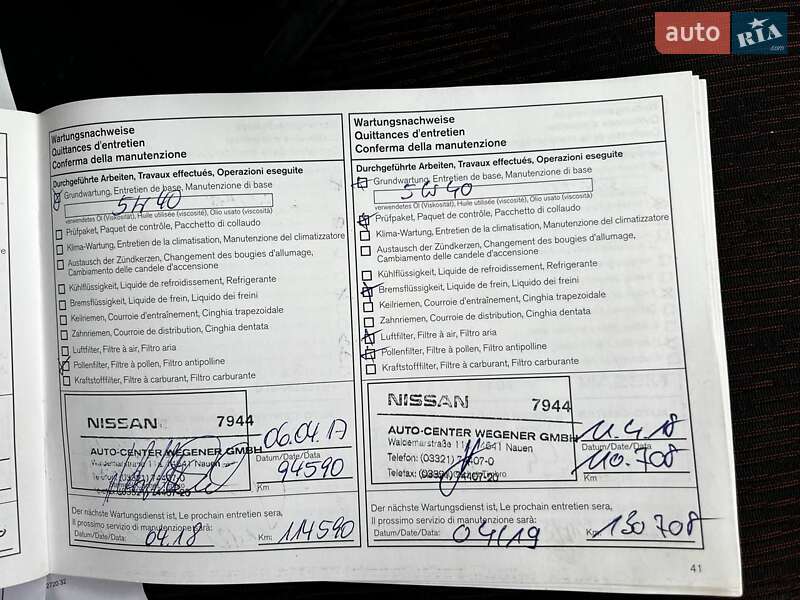 auto RIA .com
Wartungsnachweise
Quittances d'entretien
Conferma della manutenzione
Durchgeführte Arbeiten, Travaux effectués, Operazioni eseguite
Grundwartung, Entretien de base, Manutenzione di base
5W40
verwendetes Öl (Viskosität), Huile utilisée (viscosité), Olio usato (viscosità)
Prüfpaket, Paquet de contrôle, Pacchetto di collaudo
Klima-Wartung, Entretien de la climatisation, Manutenzione del climatizzatore
Austausch der Zündkerzen, Changement des bougies d'allumage,
Cambiamento delle candele d'accensione
Kühlflüssigkeit, Liquide de refroidissement, Refrigerante
Bremsflüssigkeit, Liquide de frein, Liquido dei freini
Keilriemen, Courroie d'entraînement, Cinghia trapezoidale
Zahnriemen, Courroie de distribution, Cinghia dentata
Luftfilter, Filtre à air, Filtro aria
Pollenfilter, Filtre à pollen, Filtro antipolline
Kraftstofffilter, Filtre à carburant, Filtro carburante
NISSAN 7944
AUTO-CENTER WEGENER GMBH
Nauen
06.04.17
Datum/Date/Data
94590
Km
Der nächste Wartungsdienst ist, Le prochain entretien sera,
Il prossimo servizio di manutenzione sarà:
Datum/Date/Data: 04.18 Km: 114590
Wartungsnachweise
Quittances d'entretien
Conferma della manutenzione
Durchgeführte Arbeiten, Travaux effectués, Operazioni eseguite
Grundwartung, Entretien de base, Manutenzione di base
5W40
verwendetes Öl (Viskosität), Huile utilisée (viscosité), Olio usato (viscosità)
Prüfpaket, Paquet de contrôle, Pacchetto di collaudo
Klima-Wartung, Entretien de la climatisation, Manutenzione del climatizzatore
Austausch der Zündkerzen, Changement des bougies d'allumage,
Cambiamento delle candele d'accensione
Kühlflüssigkeit, Liquide de refroidissement, Refrigerante
Bremsflüssigkeit, Liquide de frein, Liquido dei freini
Keilriemen, Courroie d'entraînement, Cinghia trapezoidale
Zahnriemen, Courroie de distribution, Cinghia dentata
Luftfilter, Filtre à air, Filtro aria
Pollenfilter, Filtre à pollen, Filtro antipolline
Kraftstofffilter, Filtre à carburant, Filtro carburante
NISSAN 7944
AUTO-CENTER WEGENER GMBH
Waldemarstraße 11 Nauen
Telefon: (03321) 74407-0
Telefax: (03321) 74407-20
11.4.18
Datum/Date/Data
110.708
Km
Der nächste Wartungsdienst ist, Le prochain entretien sera,
Il prossimo servizio di manutenzione sarà:
Datum/Date/Data: 04/19 Km: 130708
41